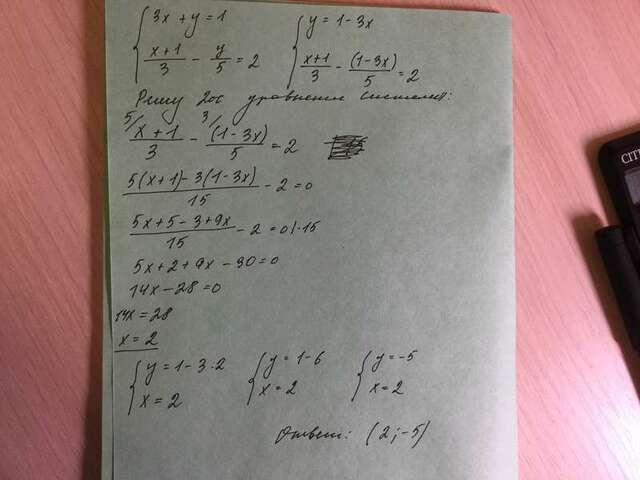 3x + y = 1
y = 1 - 3x
(x+1)/3 - y/5 = 2
(x+1)/3 - (1-3x)/5 = 2
Решу 2ое уравнение системы:
5/ (x+1)/3 - 3/ (1-3x)/5 = 2
(5(x+1) - 3(1-3x))/15 - 2 = 0
(5x + 5 - 3 + 9x)/15 - 2 = 0 | · 15
5x + 2 + 9x - 30 = 0
14x - 28 = 0
14x = 28
x = 2
y = 1 - 3 · 2
x = 2
y = 1 - 6
x = 2
y = -5
x = 2
Ответ: (2; -5)
CIT